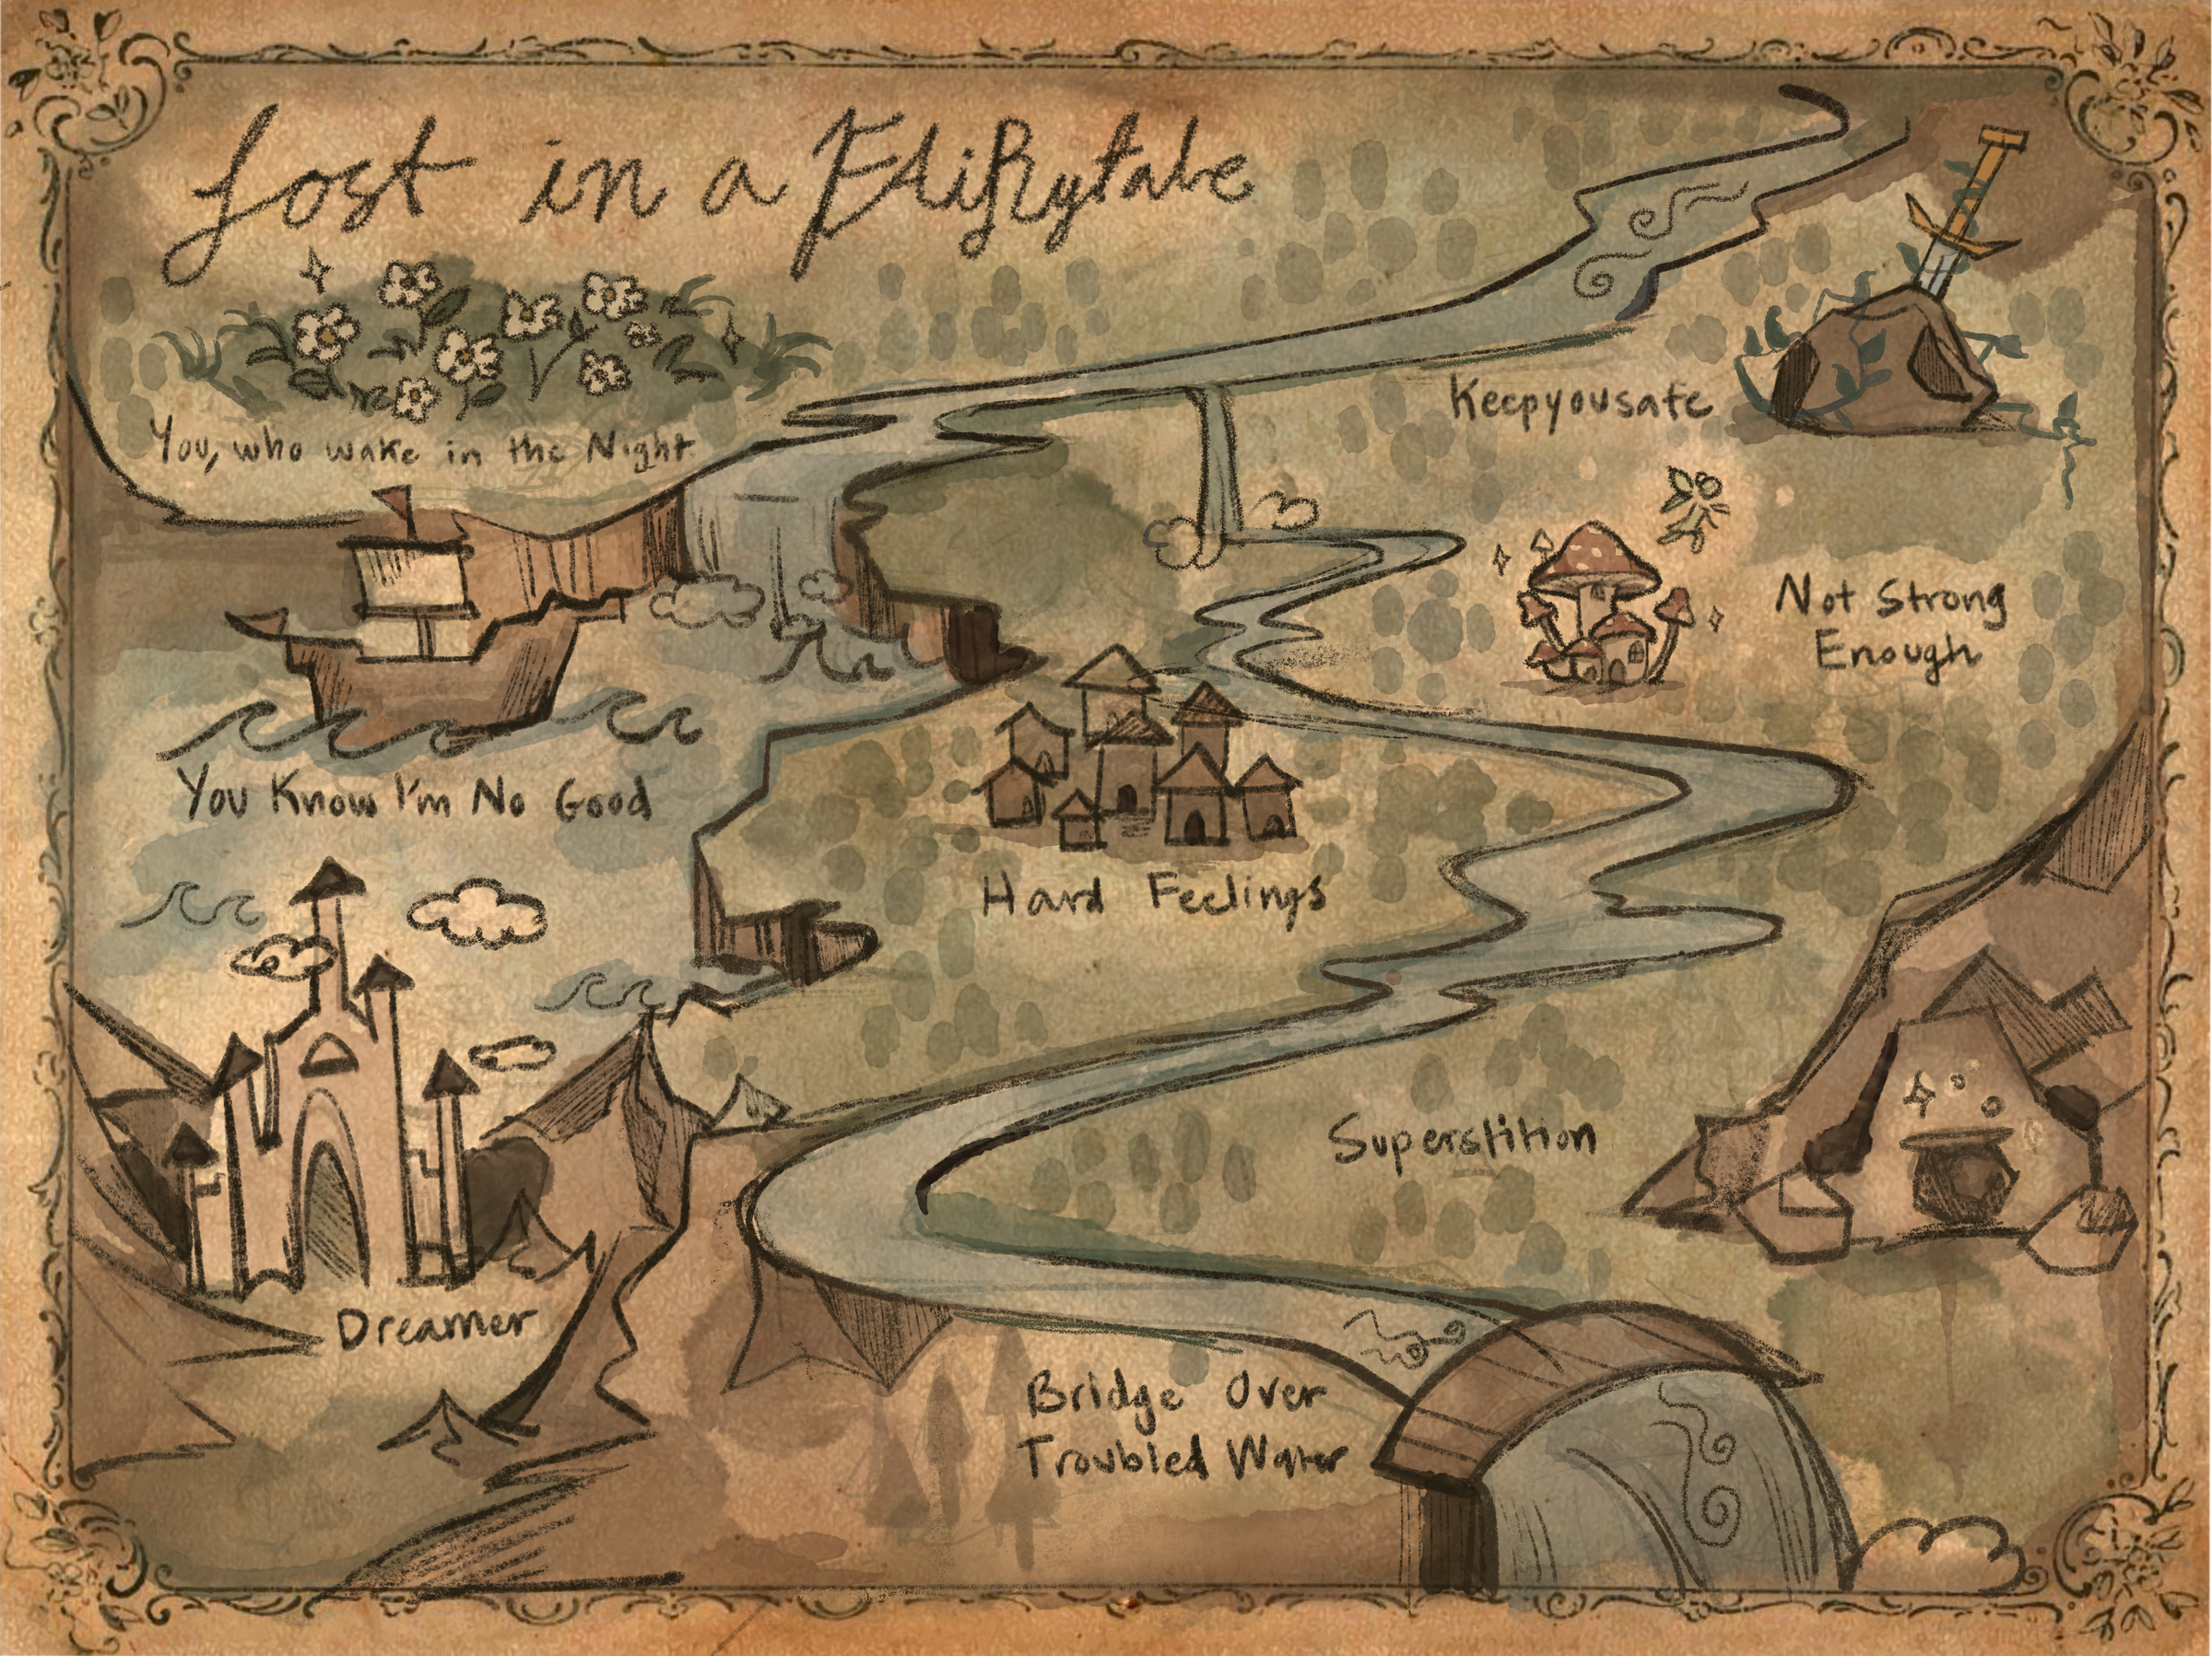 Lost in a FAiRytale
You, who wake in the Night
Keepyousafe
Not Strong
Enough
You Know I'm No Good
Hard Feelings
Superstition
Dreamer
Bridge Over
Troubled Water